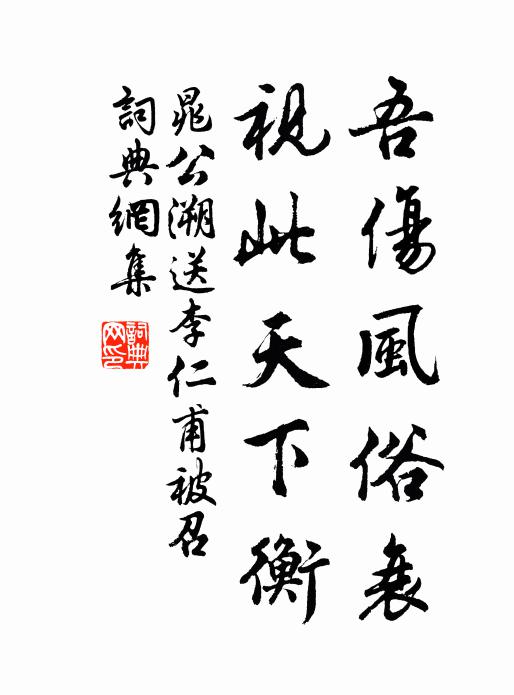 吾傷風俗衰
視此天下衡
晁公溯送李仁甫被召
詞典網集
詞典網印